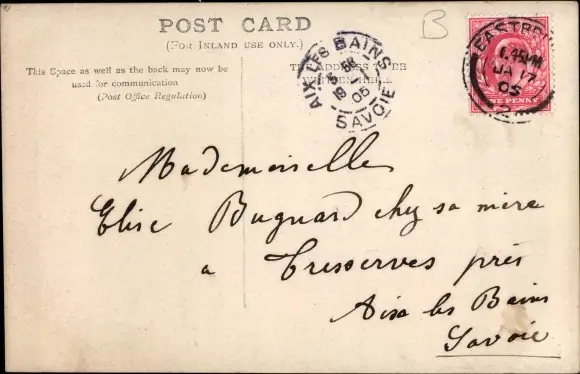 B
POST CARD
(FOR INLAND USE ONLY.)
This Space as well as the back may now be
used for communication
(Post Office Regulation)
AIX-LES-BAINS
05
SAVOIE
EASTBO
JA 17
05
ONE PENNY
Mademoiselle
Elise Buguard chez sa mère
a Tresserves près
Aix les Bains
Savoie